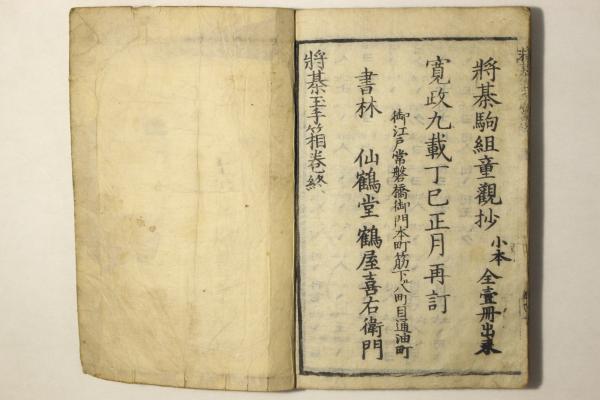 將棊駒組童觀抄 小本 全壹冊出来
寛政九載丁巳正月再訂
御江戸常磐橋御門本町筋下八町目通油町
書林 仙鶴堂 鶴屋喜右衛門
將棊玉手箱卷終